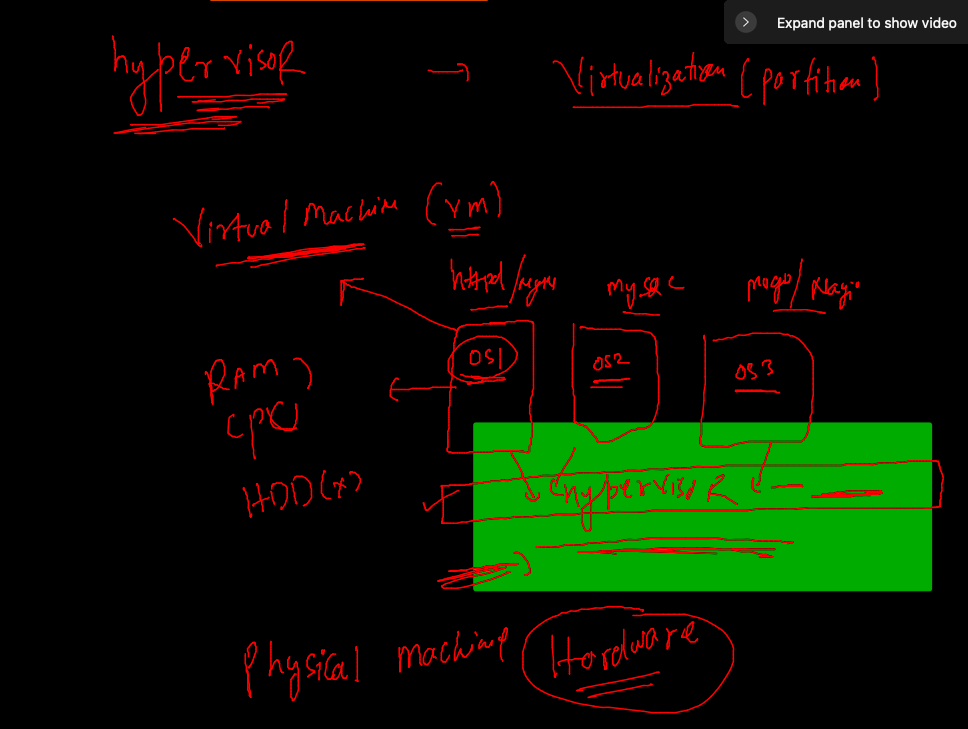 Expand panel to show video
hypervisoR → Virtualization [partition]
Virtual Machine (vm)
httpd/ngnx mysqc mogo/Nagio
OS1 OS2 OS3
RAM
CPU
HDD(x)
hypervisoR
Physical machine Hardware